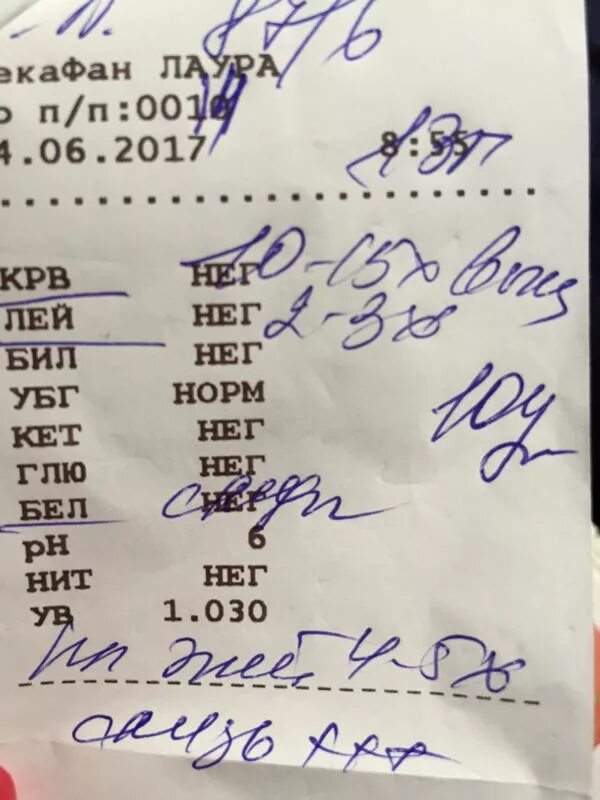 876
екаФан ЛАУРА
о п/п:001
4.06.2017 8:55
КРВ НЕГ 10-15х
ЛЕЙ НЕГ 2-3х
БИЛ НЕГ
УБГ НОРМ
КЕТ НЕГ
ГЛЮ НЕГ
БЕЛ НЕГ следы
pH 6
НИТ НЕГ
УВ 1.030
пл эпит 4-5х
слизь +++